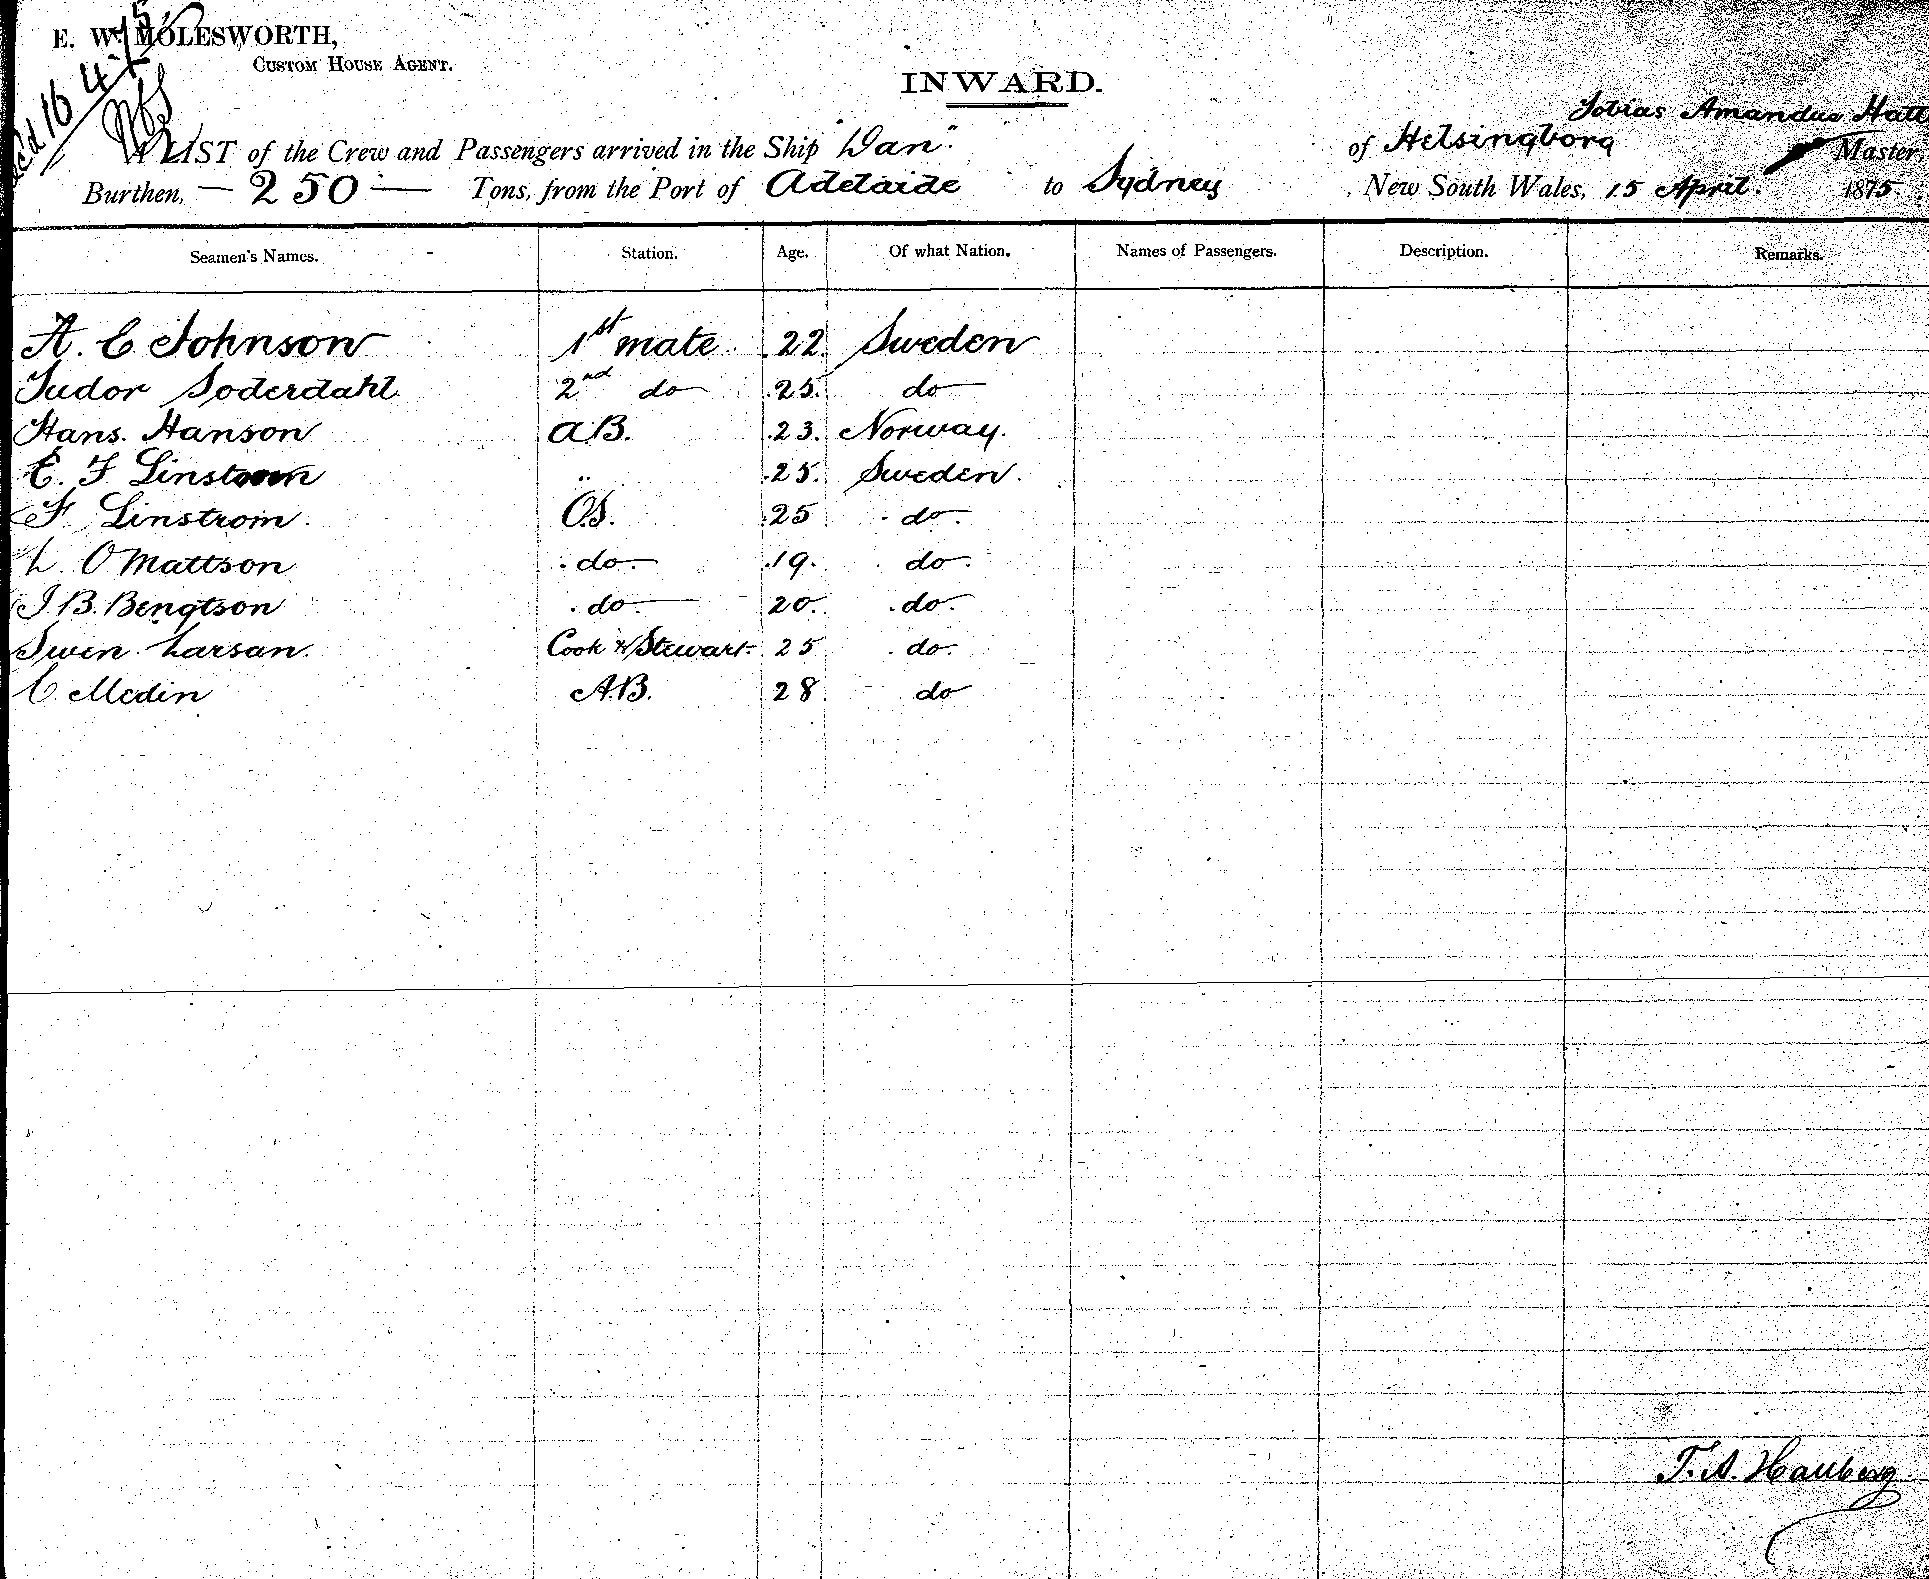 E. W. MOLESWORTH,
CUSTOM HOUSE AGENT.
16 4 75
INWARD.
Tobias Amandus
A LIST of the Crew and Passengers arrived in the Ship "Dan" of Helsingborg Master
Burthen, — 250 — Tons, from the Port of Adelaide to Sydney New South Wales, 15 April. 1875.
Seamen's Names. Station. Age. Of what Nation. Names of Passengers. Description. Remarks.
A. C Johnson 1st mate 22 Sweden
Tudor Soderdahl 2nd do 25 do
Hans. Hanson AB. 23. Norway.
C. F Linstrom " 25. Sweden.
F Linstrom OS. 25 do.
L. O Mattson do. 19. do.
J B. Bengtson do. 20. do.
Swen Larsan Cook & Stewart. 25 do.
C Medin A.B. 28 do
T. A. Hallberg